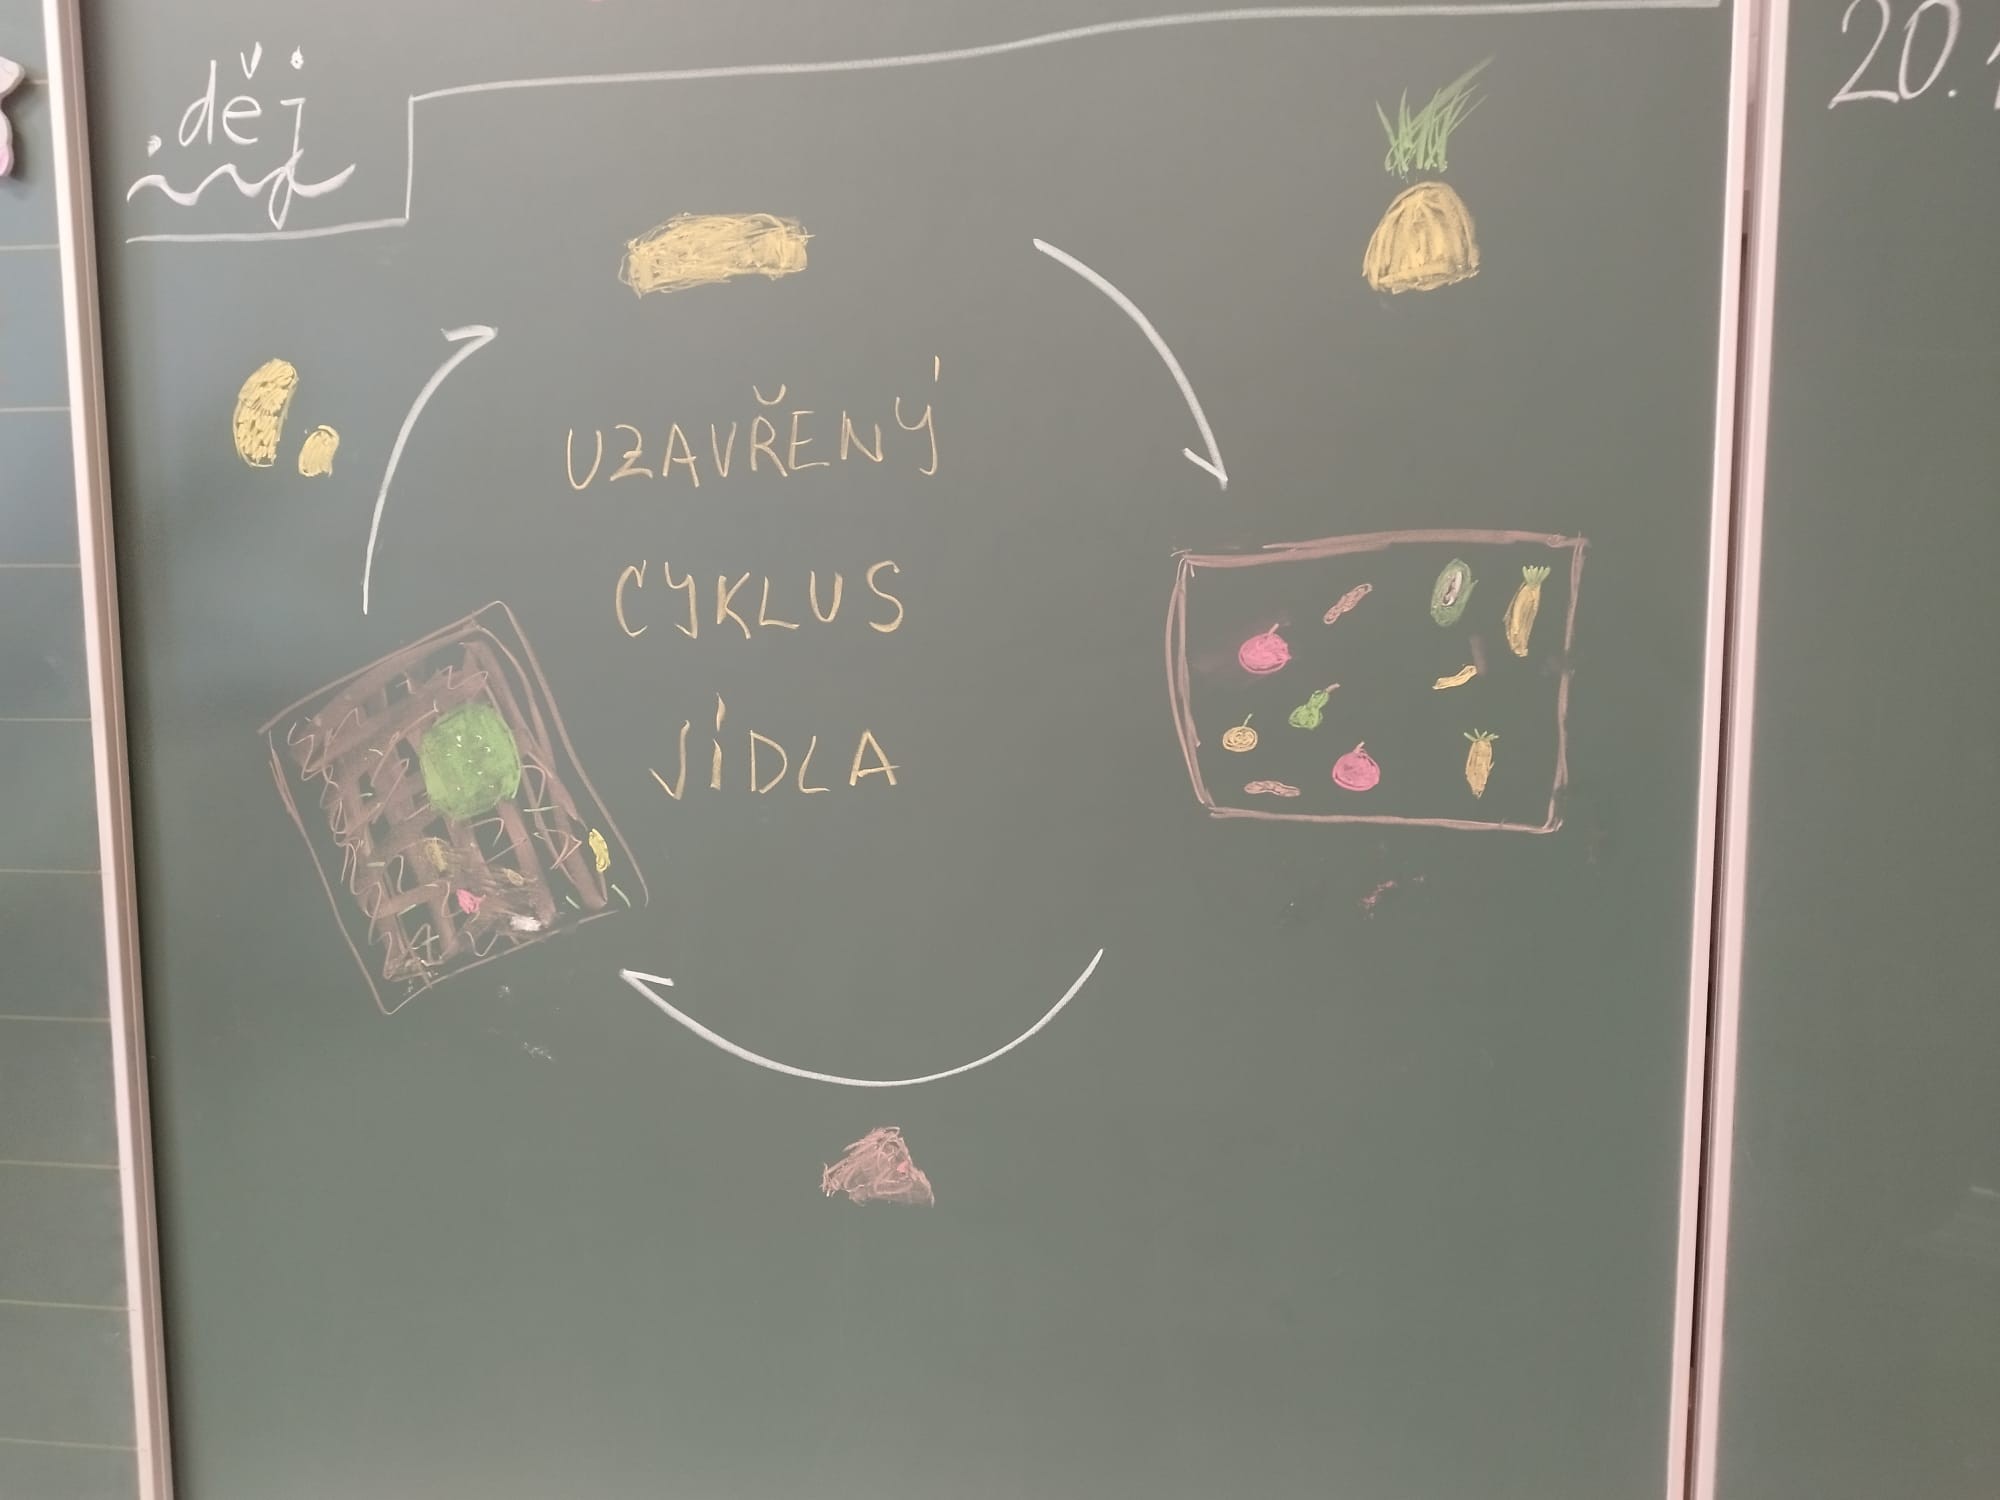 děj
20.
UZAVŘENÝ
CYKLUS
JÍDLA